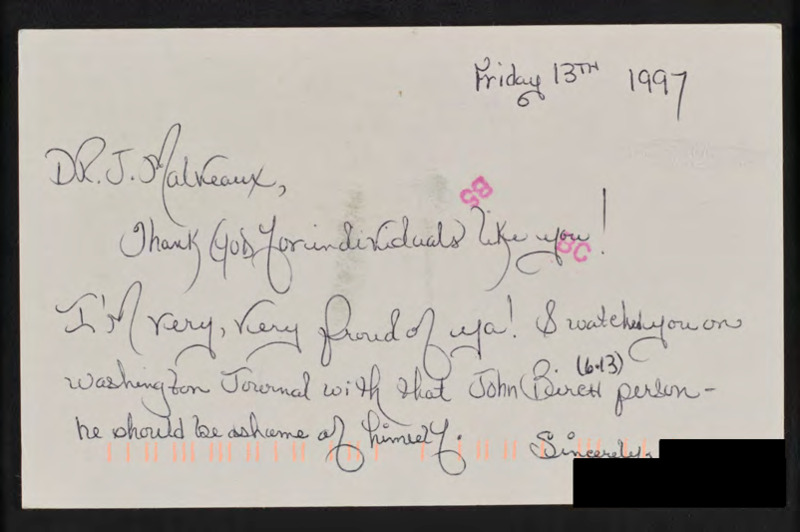 Friday 13TH 1997
DR. J. Malveaux,
Thank God for individuals like you!
I'M very, very proud of ya! I watched you on
(6.13)
Washington Journal with that John Birch person -
he should be ashame of himself.
Sincerely,
BS
BC